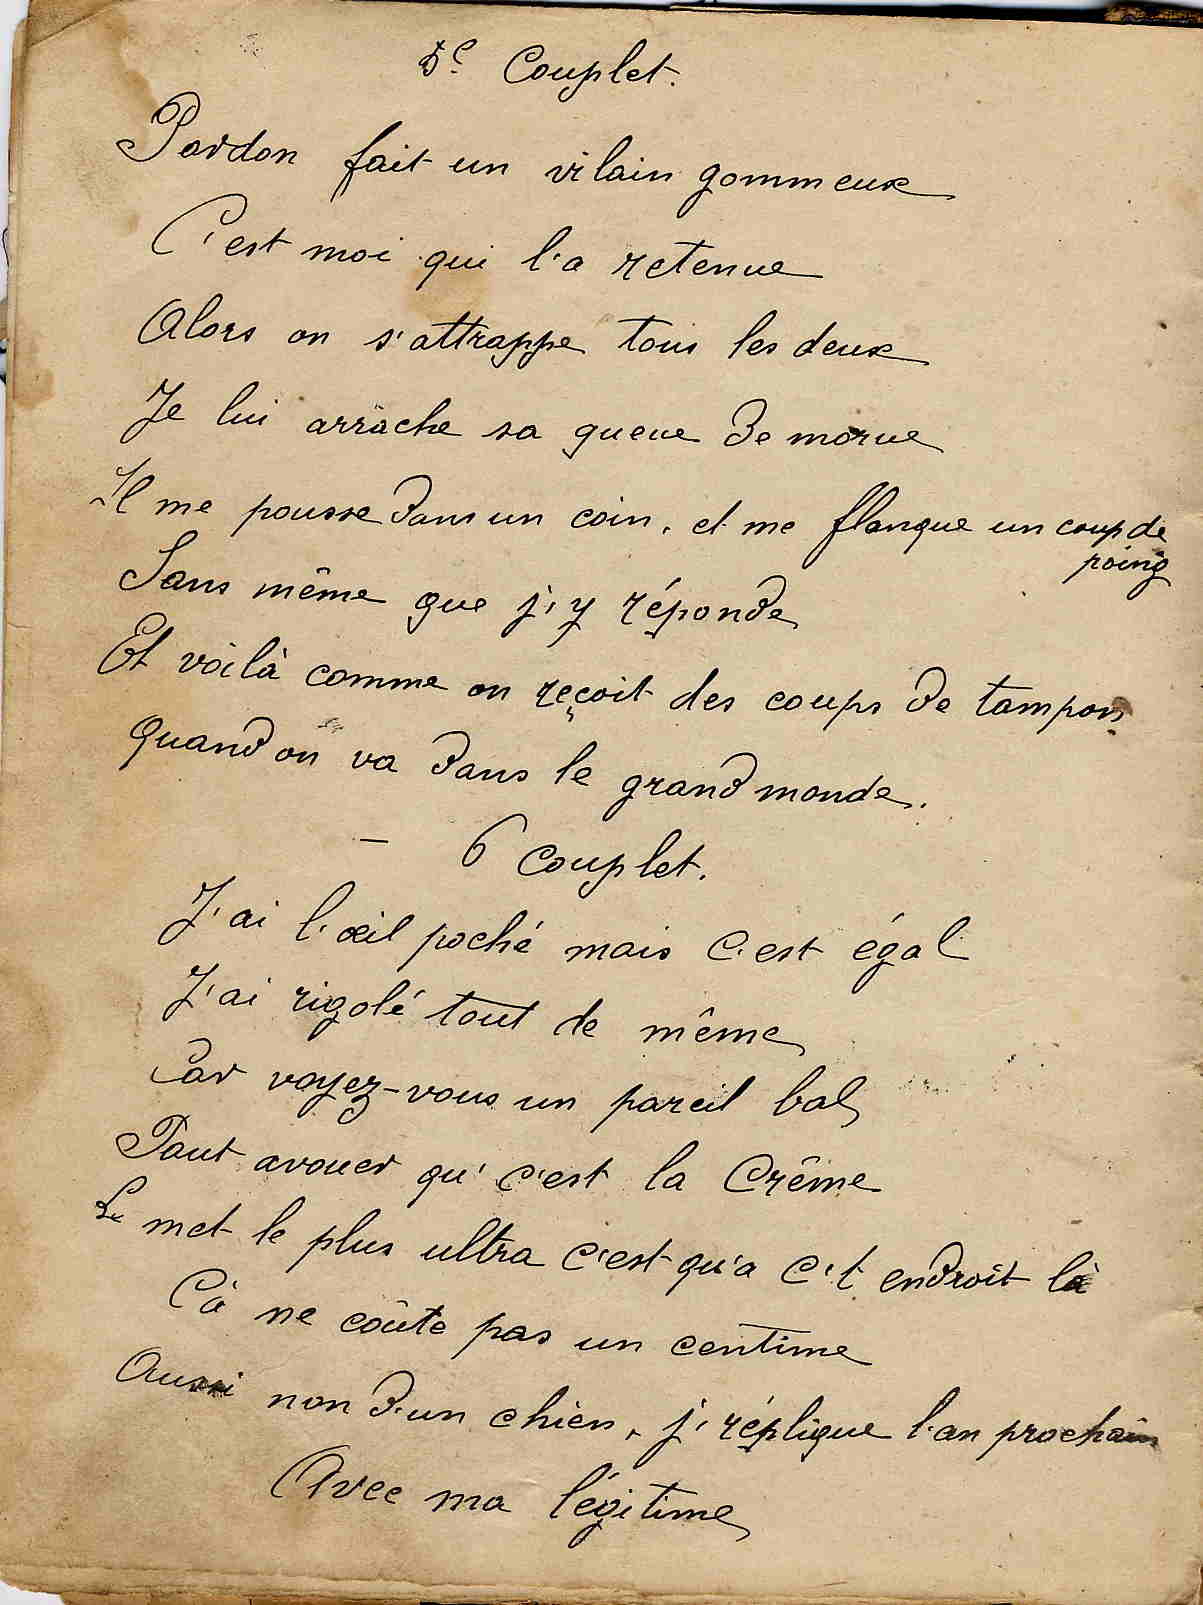 5e Couplet.
Pardon fait un vilain gommeux
C'est moi qui l'a retenue
Alors on s'attrappe tous les deux
Je lui arrache sa queue de morue
Il me pousse dans un coin, et me flanque un coup de
poing
Sans même que j'y réponde
Et voilà comme on reçoit des coups de tampon
Quand on va dans le grand monde.
– 6 Couplet.
J'ai l'œil poché mais c'est égal
J'ai rigolé tout de même
Car voyez-vous un pareil bal
Faut avouer qu' c'est la Crême
Le met le plus ultra c'est qu'a c't endroit là
Cà ne coûte pas un centime
Aussi non d'un chien, j'réplique l'an prochain
Avec ma légitime